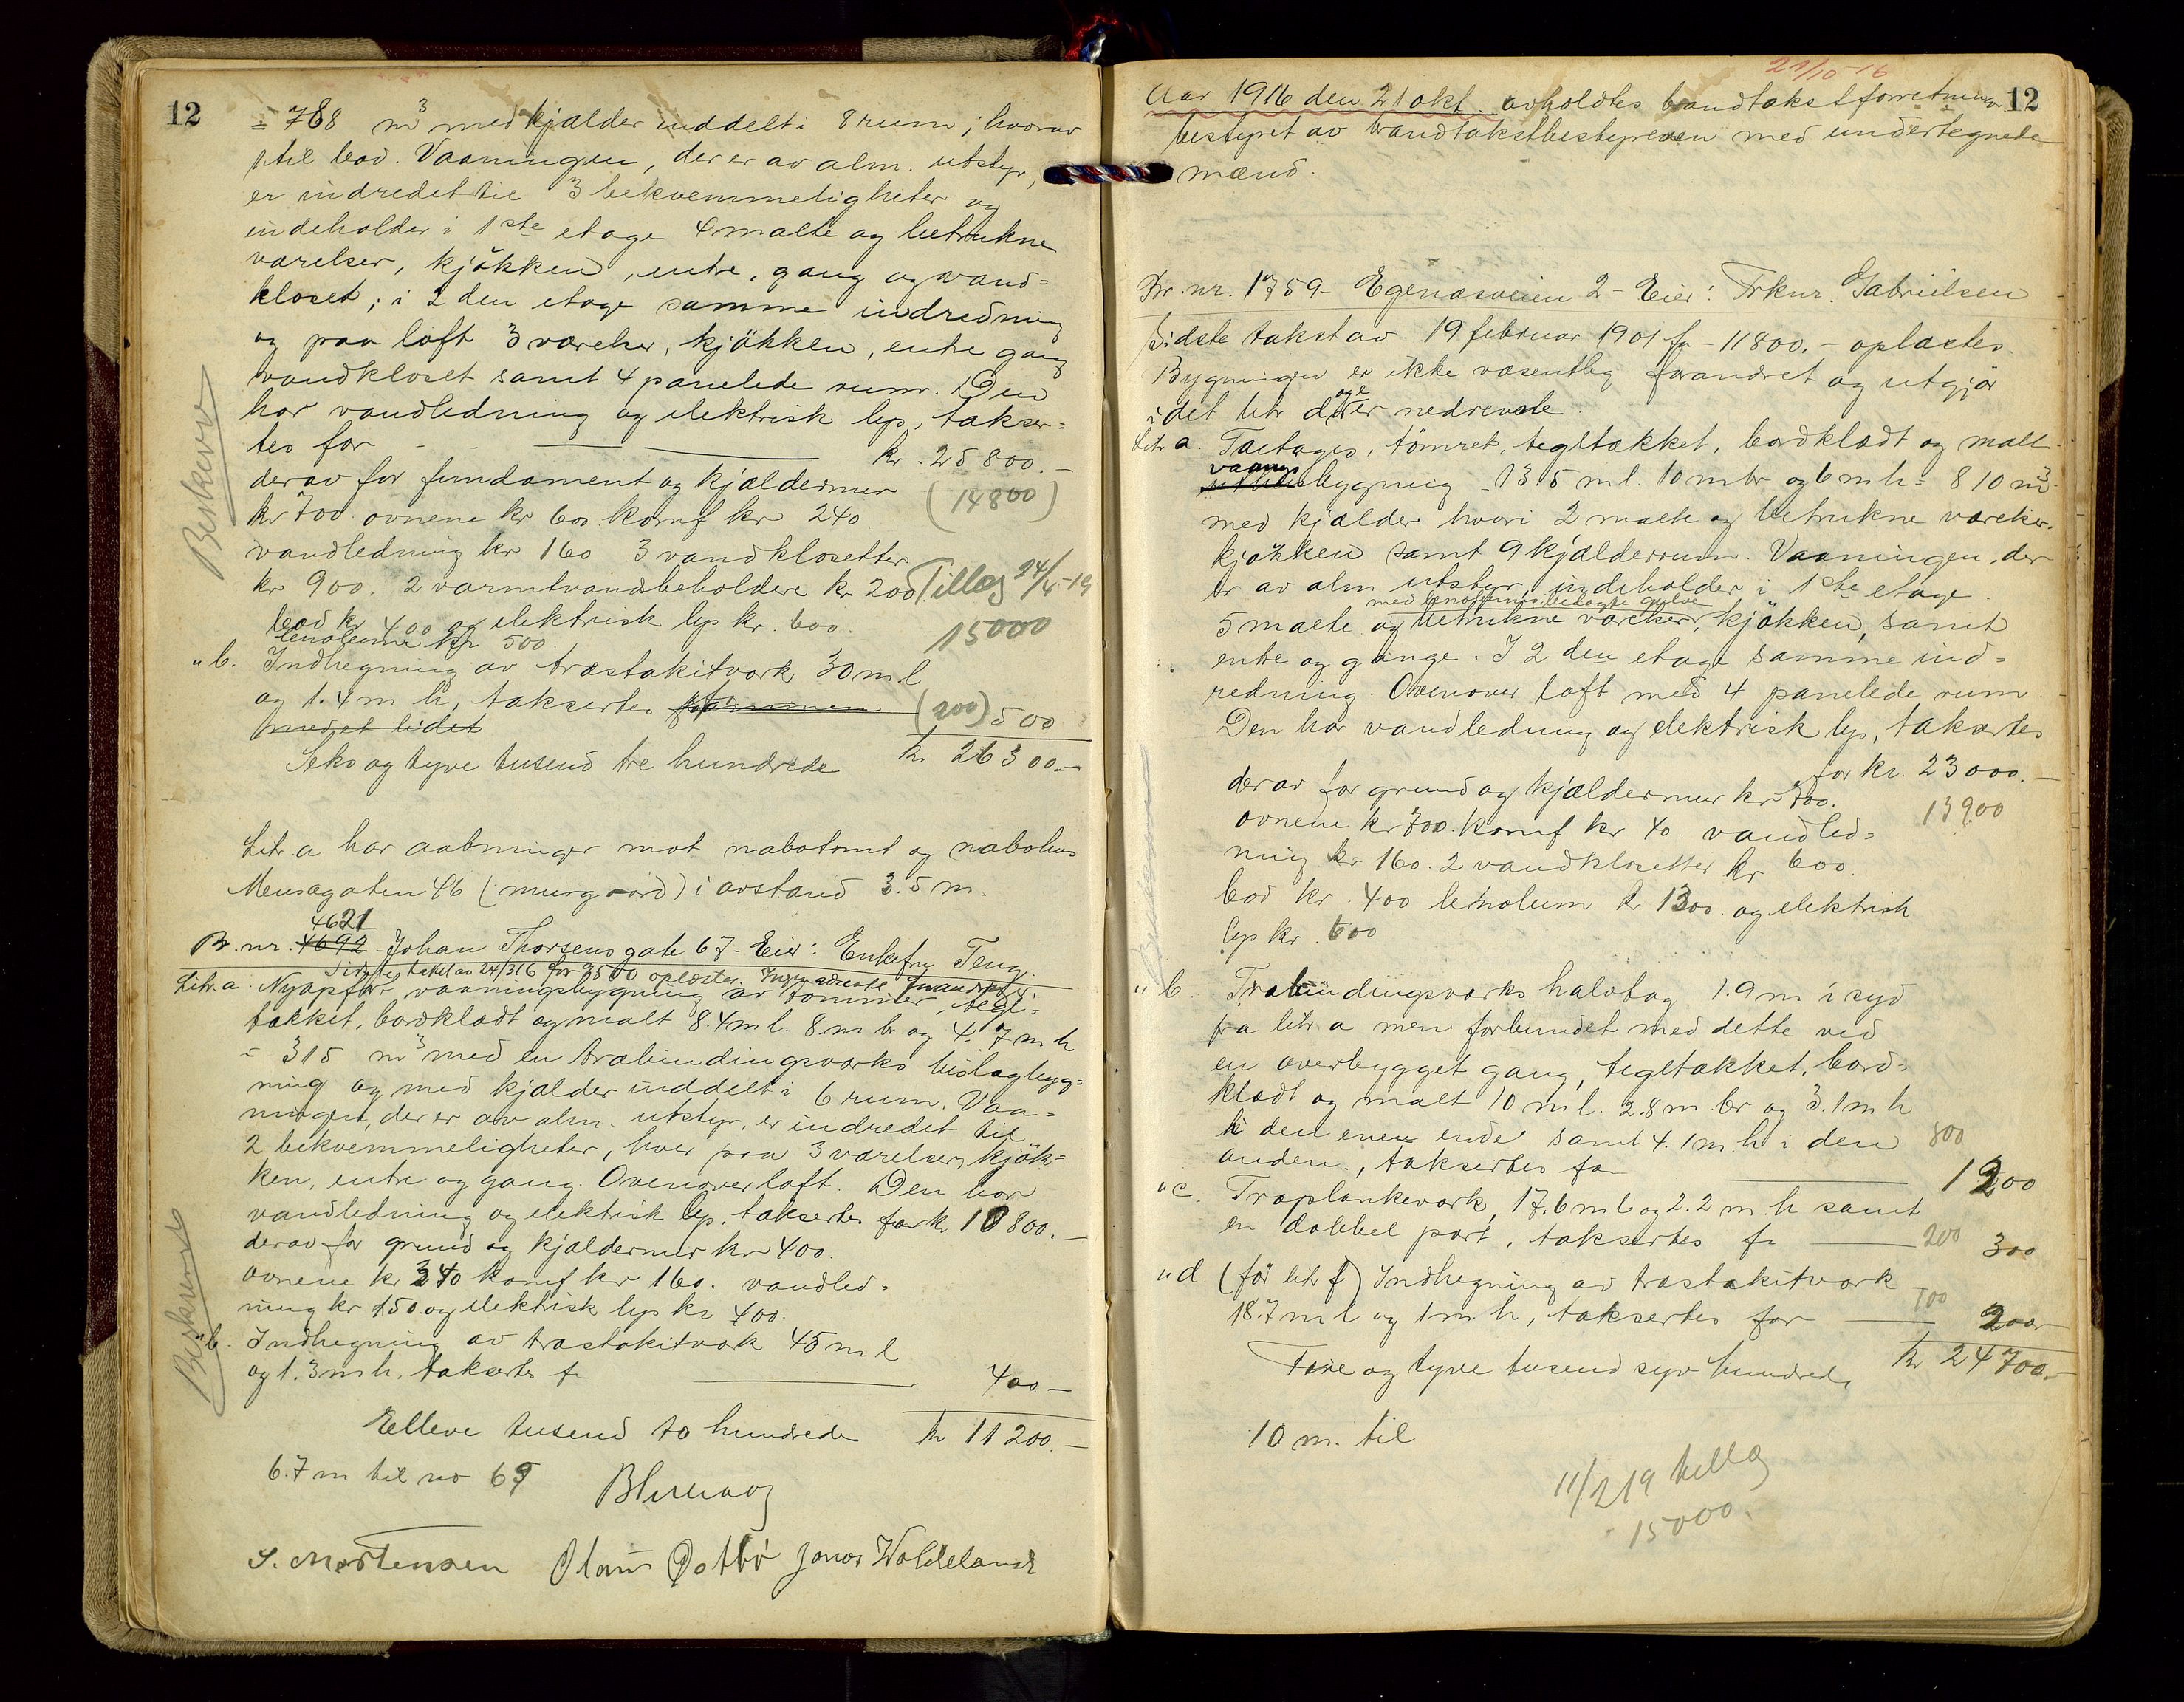 12
= 768 m3 med kjælder inddelt i 8 rum, hvorav
1 til bod. Vaaningen, der er av alm. utstyr,
er indredet til 3 bekvemmeligheter og
indeholder i 1ste etage 4 malte og betrukne
værelser, kjökken, entre, gang og vand=
kloset; i 2den etage samme indredning
og paa loft 3 værelser, kjökken, entre gang
vandkloset samt 4 panelede rum. Den
har vandledning og elektrisk lys, takser=
tes for kr. 25800.-
derav for fundament og kjældermur (14800)
kr 700. ovnene kr 600. komf kr 240.
vandledning kr 160 3 vandklosetter
kr 900. 2 varmtvandsbeholdere kr 200. Tillæg 24/4-19
bad kr 400 og elektrisk lys kr. 600. 15000
linoleum kr 500
Beskrevet
" b. Indhegning av træstakitverk 30 m l
og 1.4 m h, taksertes for (200) 500
med et lidet
Seks og tyve tusend tre hundrede kr 26300.-
Litr. a har aabninger mot nabotomt og nabohus
Musegaten 46 (murgaard) i avstand 3.5 m.
4621
Br. nr. 4692 - Johan Thorsens gate 67 - Eier: Enkefru Teng.
Sidste takst av 24/3 16 for 9500 oplæstes.
Litr. a. Nyopfört vaaningsbygning av tömmer, tegl=
tækket, bordklædt og malt 8.4 m l. 8 m br og 4.7 m h
= 315 m3 med en træbindingsverks bislagbyg=
ning og med kjælder inddelt i 6 rum. Vaa=
ningen, der er av alm. utstyr, er indredet til
2 bekvemmeligheter, hver paa 3 værelser, kjök=
ken, entre og gang. Ovenover loft. Den har
vandledning og elektrisk lys, taksertes for kr 10800.-
derav for grund og kjældermur kr 400.
ovnene kr 340 komf kr 160. vandled=
ning kr 150. og elektrisk lys kr 400.
Beskrevet
" b. Indhegning av træstakitverk 45 m l
og 1.3 m h. taksertes fr 400 -
Elleve tusend to hundrede kr 11200.-
6.7 m til no 69
S. Mortensen Olaus Østbö Jonas Woldeland
21/10-16
12
Aar 1916 den 21 okt. avholdtes brandtakstforretning
bestyret av brandtakstbestyreren med undertegnede
mænd.
Br. nr. 1759 - Egenæsveien 2 - Eier: Frknr. Gabrielsen
Sidste takst av 19 februar 1901 fr - 11800.- oplæstes.
Bygningen er ikke væsentlig forandret og utgjör
i det hele nedrevne
Litr a. Toetages, tömret, tegltækket, bordklædt og malt
vaanings
bygning - 13.5 m l. 10 m br og 6 m h = 810 m3.
med kjælder hvori 2 malte og betrukne værelser,
kjökken samt 9 kjælderrum. Vaaningen, der
er av alm utstyr, indeholder i 1ste etage
med linoleums belagte gulve
5 malte og betrukne værelser, kjökken, samt
entre og gange. I 2den etage samme ind=
redning. Ovenover loft med 4 panelede rum.
Den har vandledning og elektrisk lys, taksertes
for kr. 23000.-
derav for grund og kjældermur kr 700. 13900
ovnene kr 700. komf kr 40. vandled=
ning kr 160. 2 vandklosetter kr 600.
bad kr. 400 linoleum kr 1300. og elektrisk
lys kr 600
" b. Træbindingsverks halvtag 1.9 m i syd
fra litr. a men forbundet med dette ved
en overbygget gang, tegltækket, bord=
klædt og malt 10 m l. 2.8 m br og 3.1 m h
i den ene ende samt 4.1 m h i den 800
anden, taksertes for 1200
" c. Træplankeverk, 17.6 m l og 2.2 m. h samt
en dobbel port, taksertes fr 200 300
" d. (för litr f) Indhegning av træstakitverk
18.7 m l og 1 m h, taksertes for 100 200
Fire og tyve tusend syv hundrede kr 24700.-
10 m. til
11/2 19 tillæg
15000.